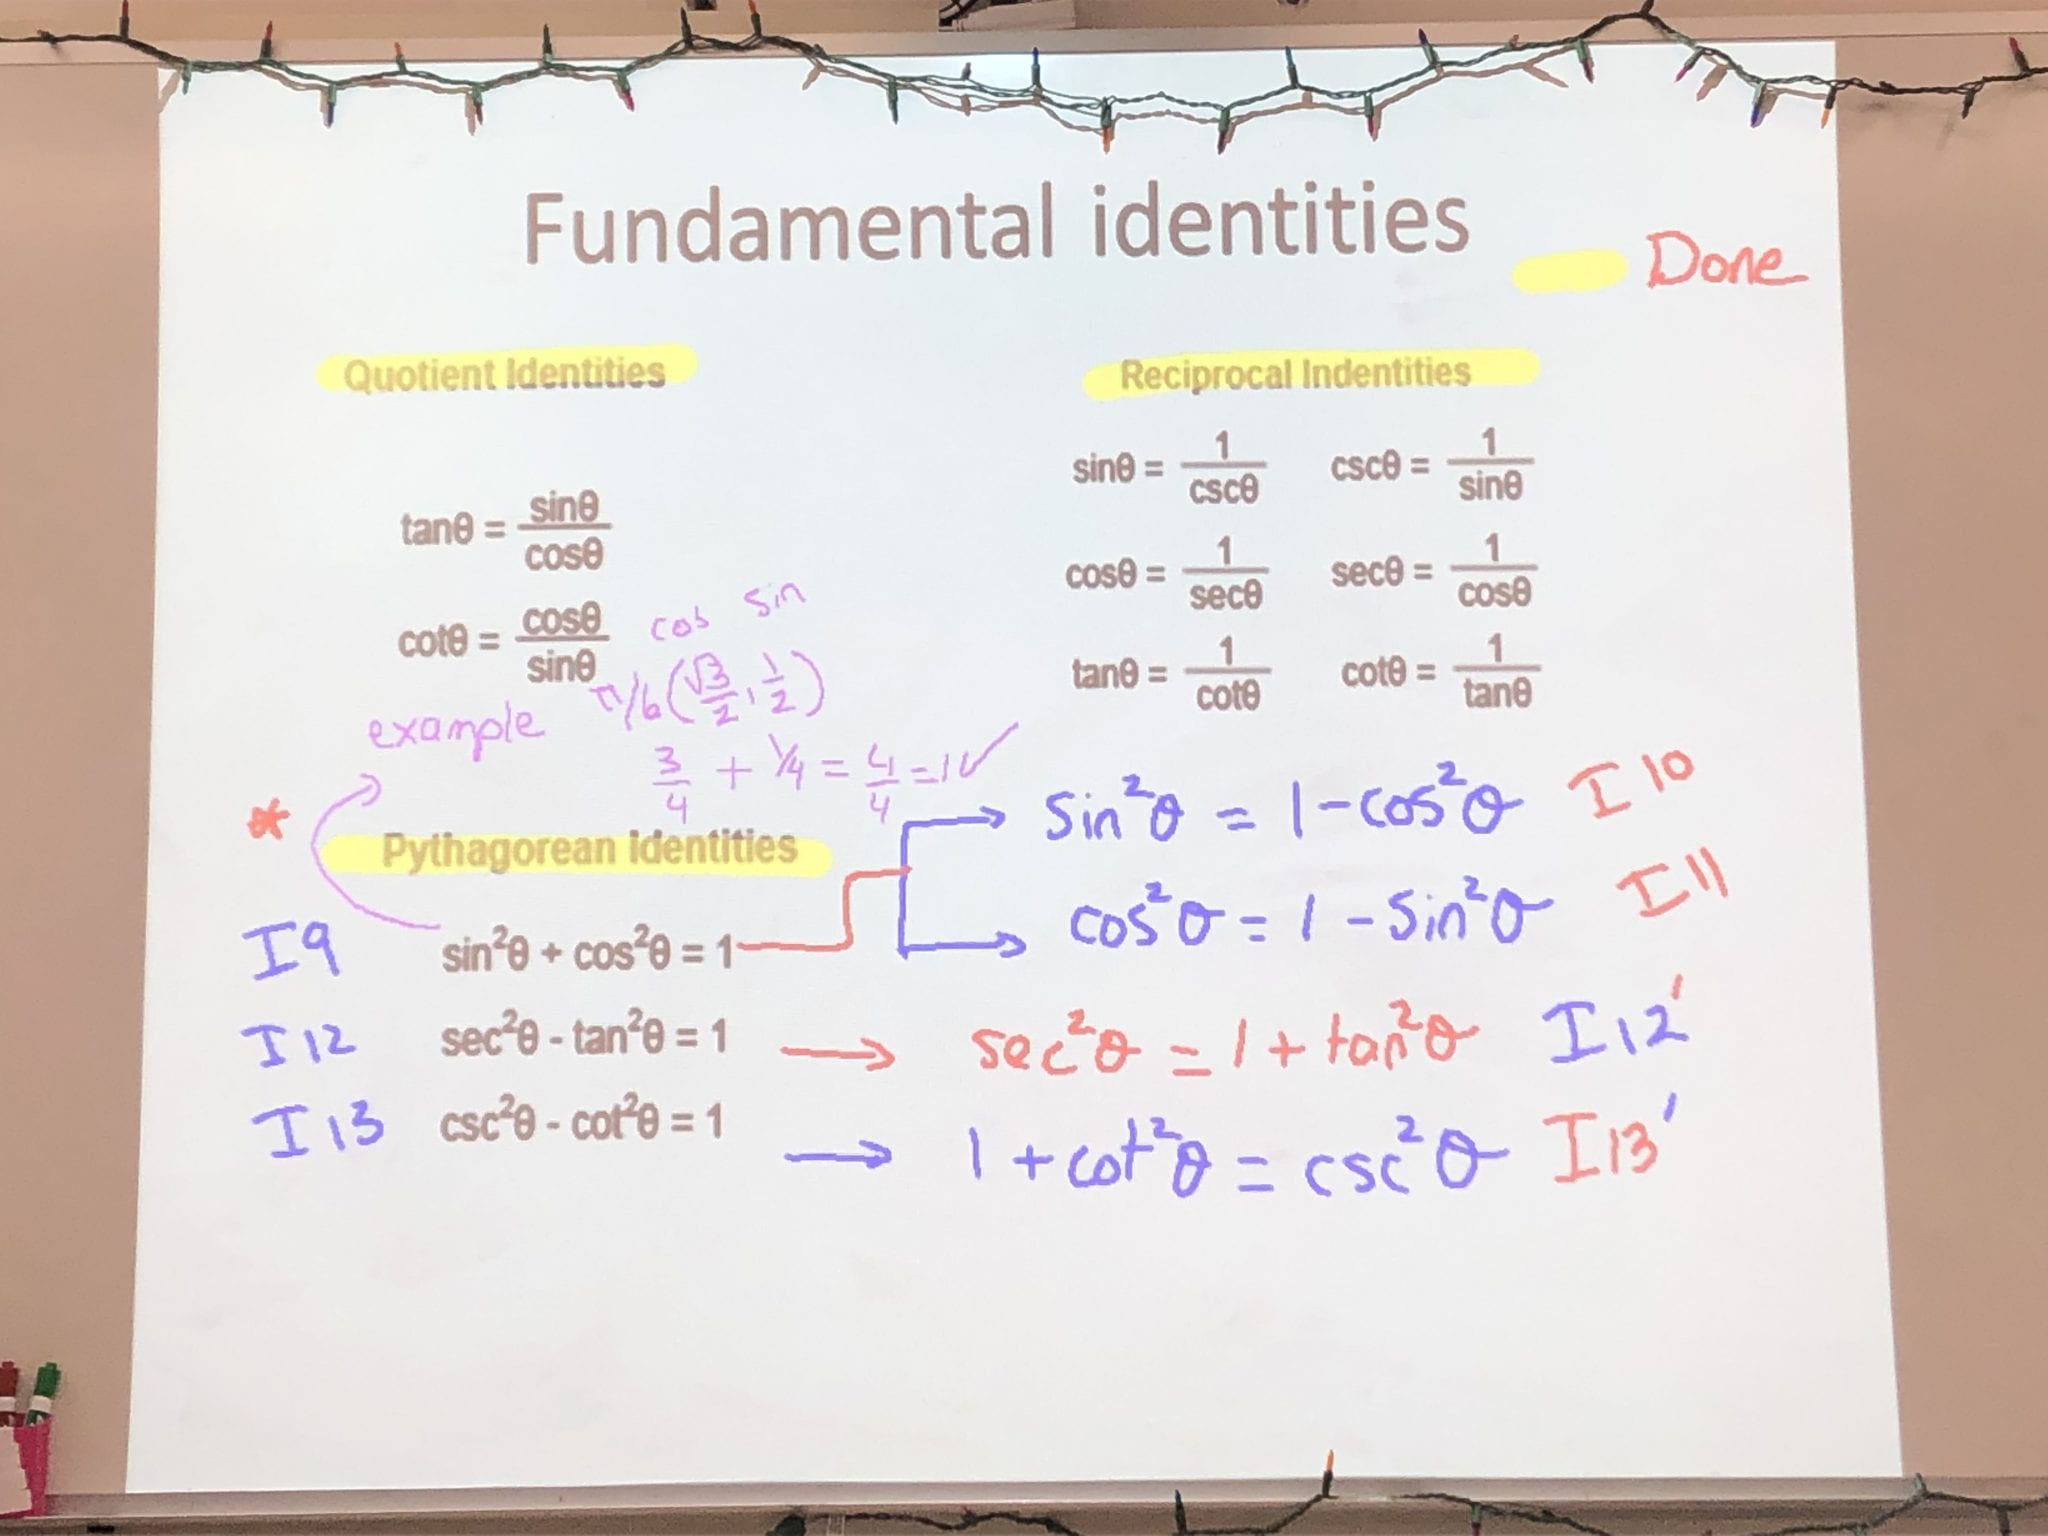 Fundamental identities
Done
Quotient Identities
tanθ = sinθ/cosθ
cotθ = cosθ/sinθ
Reciprocal Indentities
sinθ = 1/cscθ cscθ = 1/sinθ
cosθ = 1/secθ secθ = 1/cosθ
tanθ = 1/cotθ cotθ = 1/tanθ
cos sin
example π/6 (√3/2, 1/2)
3/4 + 1/4 = 4/4 = 1 ✓
* Pythagorean Identities
I9 sin²θ + cos²θ = 1
→ sin²θ = 1 - cos²θ I10
→ cos²θ = 1 - sin²θ I11
I12 sec²θ - tan²θ = 1 → sec²θ = 1 + tan²θ I12'
I13 csc²θ - cot²θ = 1 → 1 + cot²θ = csc²θ I13'